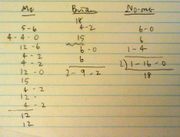 Me
5-6
4-4-0
12-6
4-2
4-2
12-0
15
4-2
12
4-2
12
12
Brian
18
4-2
15
6-0
6
2-9-2
No-one
6-0
6
1-4
2)1-16-0
18